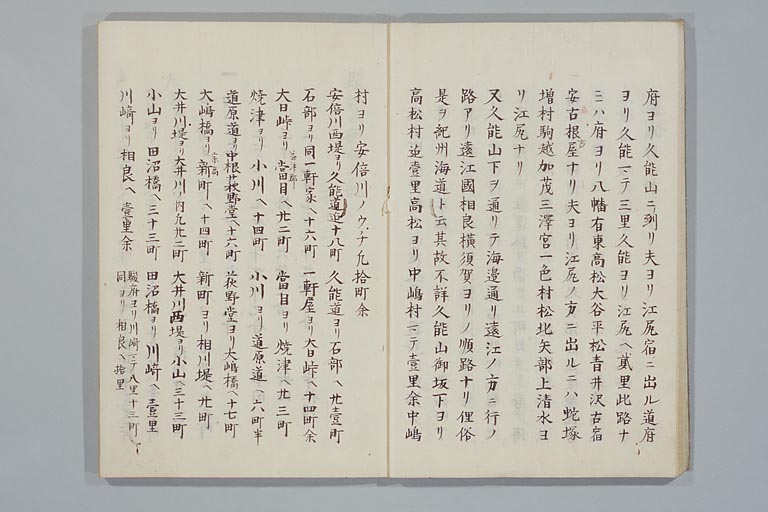 府ヨリ久能山ニ到リ夫ヨリ江尻宿ニ出ル道府
ヨリ久能マテ三里久能ヨリ江尻ヘ貳里此路ナ
ミハ府ヨリ八幡右東高松大谷平松青井沢古宿
安古根屋ナリ夫ヨリ江尻ノ方ニ出ルニハ蛇塚
増村駒越加茂三澤宮一色村松北矢部上清水ヨ
リ江尻ナリ
又久能山下ヲ通リテ海邊通リ遠江ノ方ニ行ノ
路アリ遠江國相良横須賀ヨリノ順路ナリ俚俗
是ヲ紀州海道ト云其故不詳久能山御坂下ヨリ
高松村迠壹里高松ヨリ中嶋村マテ壹里余中嶋
村ヨリ安倍川ノウチ九拾町余
安倍川西堤ヨリ久能道迠十八町 久能道ヨリ石部ヘ廿壹町
石部ヨリ同一軒家ヘ十六町 一軒屋ヨリ大日峠ヘ十四町余
大日峠ヨリ當目ヘ廿二町 當目ヨリ焼津ヘ廿三町
焼津ヨリ小川ヘ十四町 小川ヨリ道原道ヘ六町半
道原道ヨリ中根荻野堂ヘ十六町 荻野堂ヨリ大嶋橋ヘ十七町
大嶋橋ヨリ新町ヘ十四町 新町ヨリ相川堤ヘ廿町
大井川堤ヨリ大井川ノ内九廿二町 大井川西堤ヨリ小山ヘ三十三町
小山ヨリ田沼橋ヘ三十三町 田沼橋ヨリ川﨑ヘ壹里
川﨑ヨリ相良ヘ壹里余 駿府ヨリ川﨑マテ八里十三町
同ヨリ相良ヘ拾里